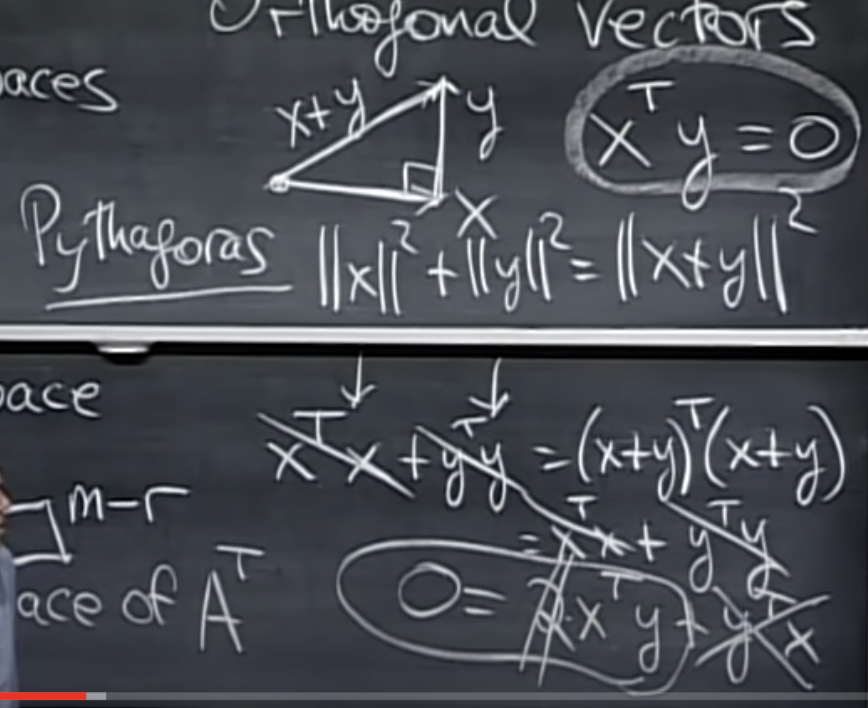 Orthogonal vectors
aces
x+y
y
x^T y = 0
x
Pythagoras ||x||^2 + ||y||^2 = ||x+y||^2
pace
x^T x + y^T y = (x+y)^T (x+y)
m-r
= x^T x + y^T y
ace of A^T
0 = 2 x^T y + y^T x